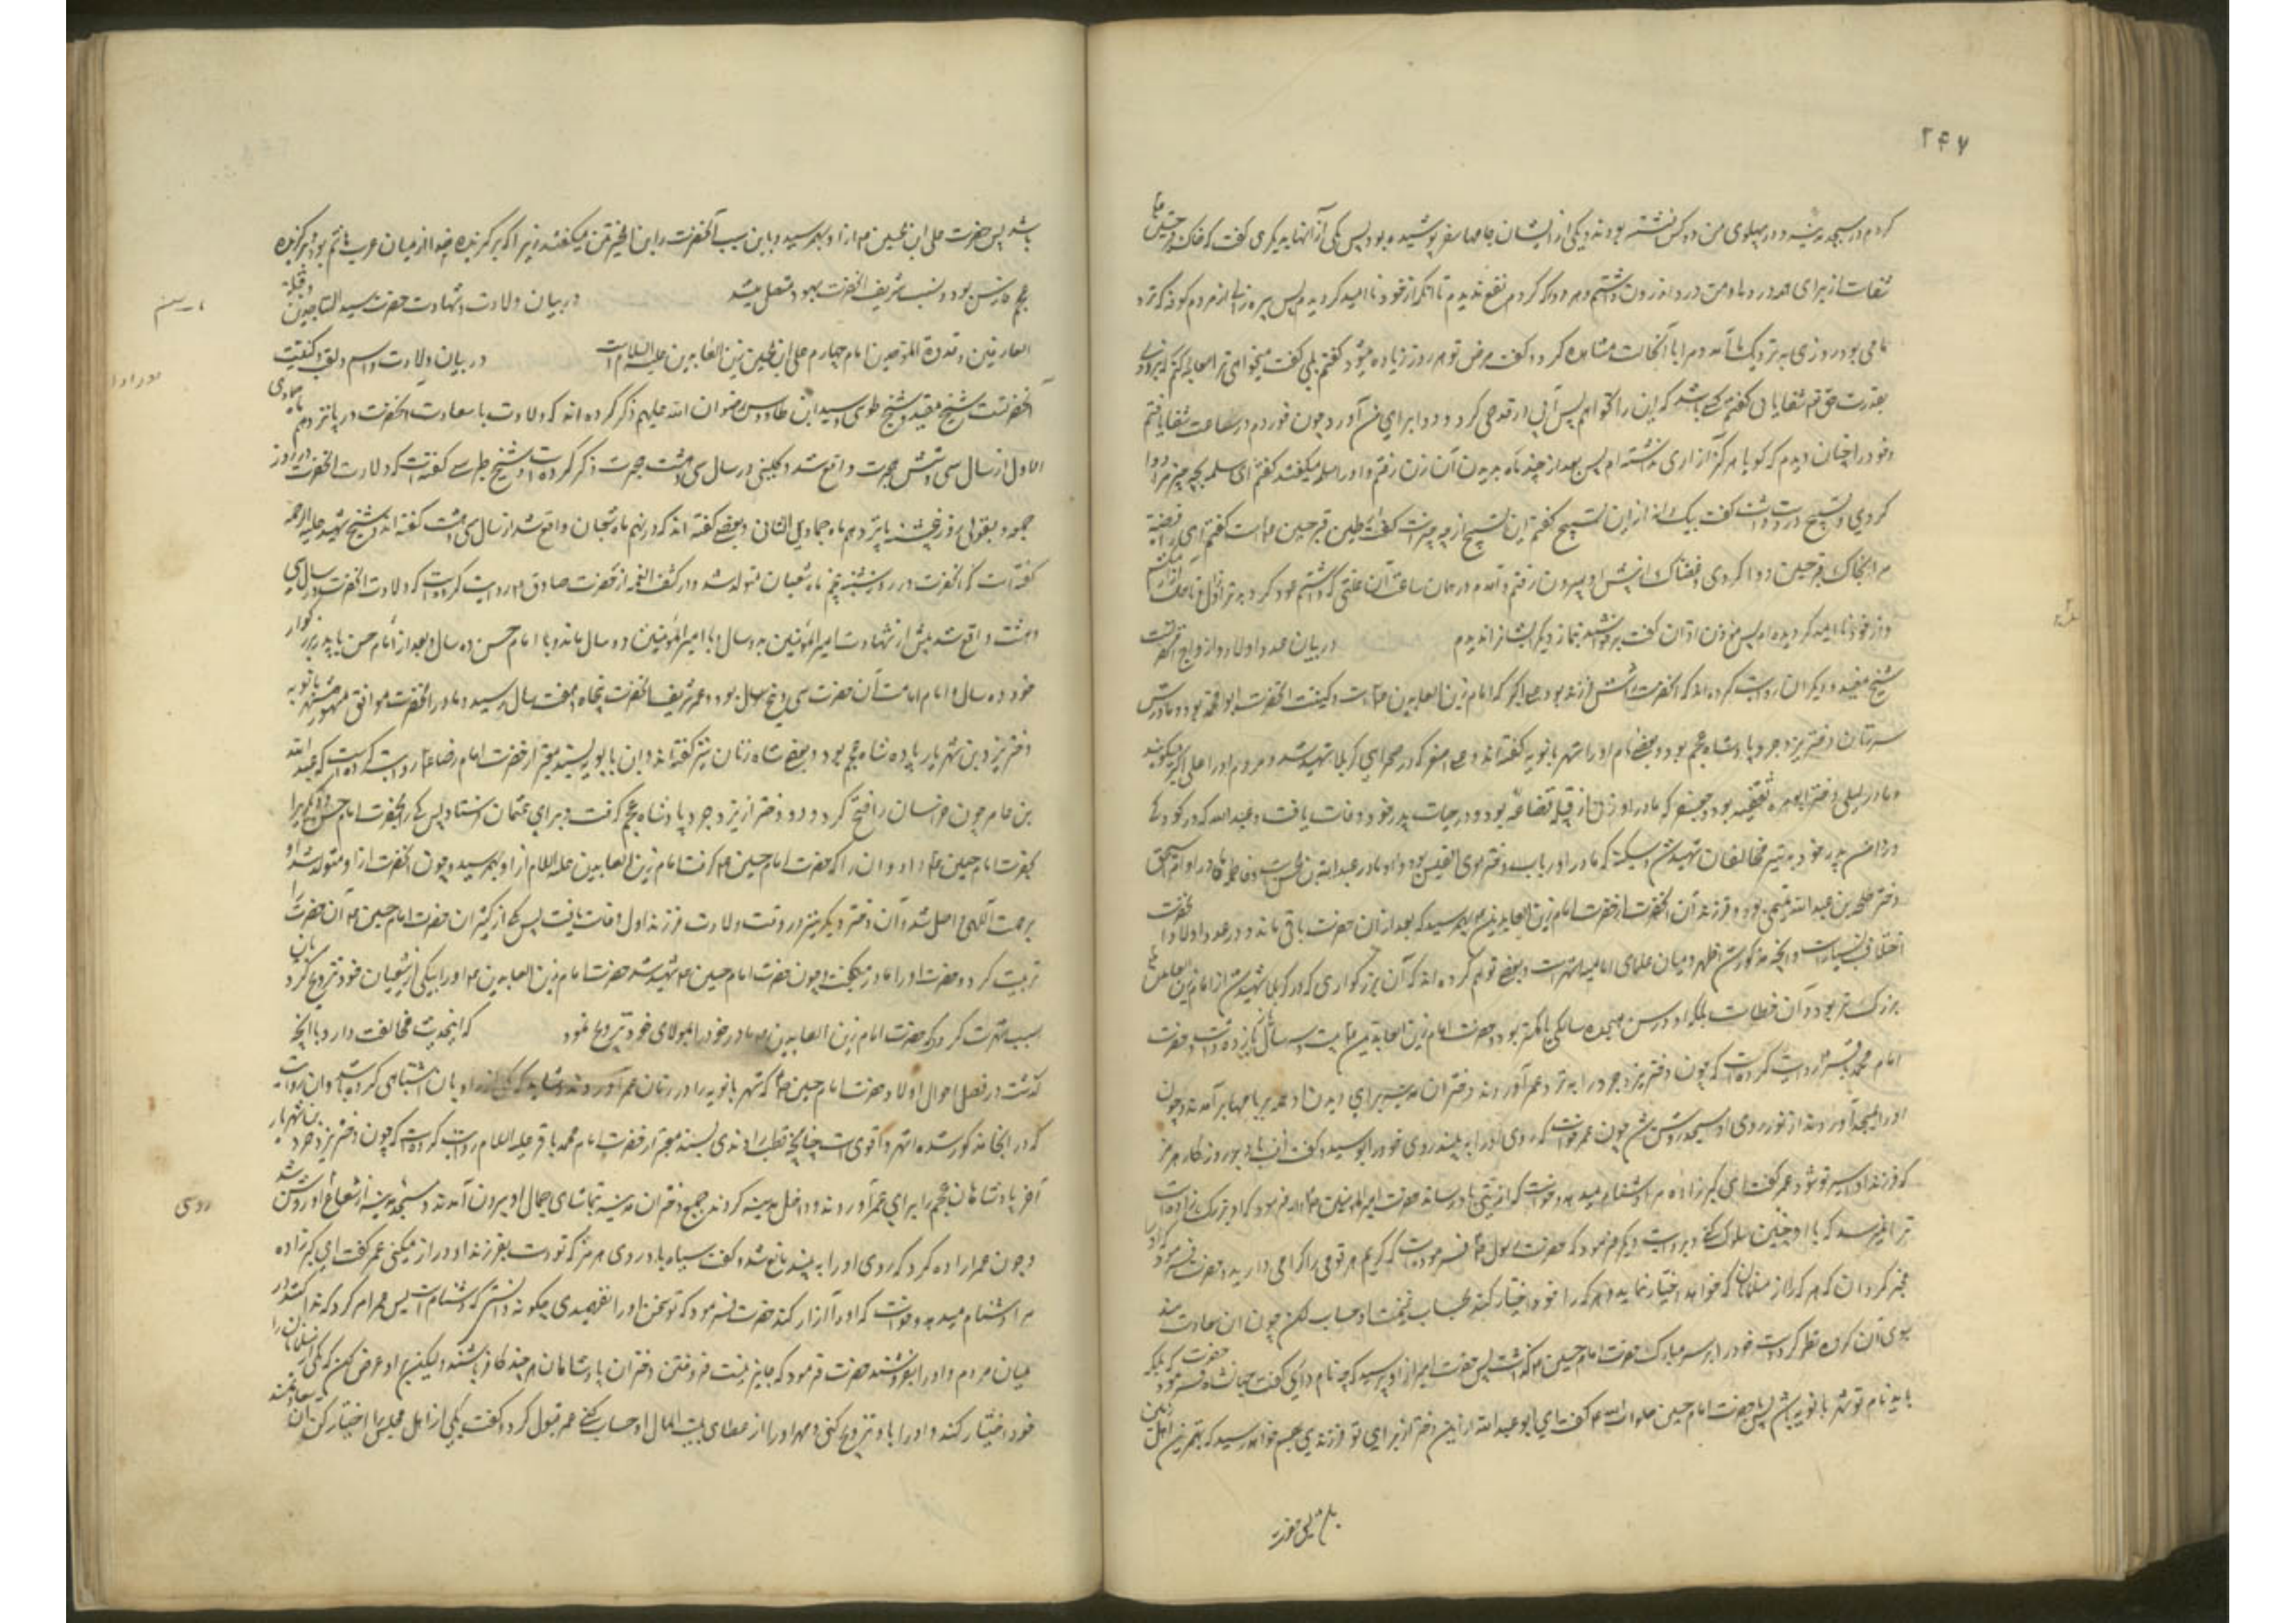 ۲۴۷
کردم در مسجد مدینه و در پهلوی من دو کس نشسته بودند و یکی از ایشان جامهای سفر پوشیده بود پس یکی از آنها بدیگری گفت که خاک قبر حسین
شفاست از برای همه دردها و من درد اندرون داشتم و هر دوا که کردم نفع ندیدم تا آنکه از خود ناامید گردیدم پس پیره زالی از مردم کوفه که نزد
ما می بود روزی به نزدیک ما آمد و مرا با آن حالت مشاهده کرد و گفت مرض تو هر روز زیاده میشود گفتم بلی گفت میخواهی ترا معالجه کنم که بزودی
بقدرت حق تعالی شفا یابی گفتم کسی باشد که این را نخواهد پس آبی در قدحی کرد و برای من آورد چون خوردم در ساعت شفا یافتم
و خود را چنان دیدم که گویا هرگز آزاری نداشته ام پس بعد از چند ماه بدیدن آن زن رفتم و او را سلمه میگفتند گفتم ای سلمه بچه چیز مرا دوا
کردی و تسبیح در دست داشت گفت بیک دانه از این تسبیح گفتم این تسبیح از چه چیز است گفت از طین قبر حسین است گفتم ای رافضیه
مرا بخاک قبر حسین دوا کردی و غضبناک از پیش او بیرون رفتم و در همان ساعت آن علتی که داشتم عود کرد
و از خود ناامید گردیده ام پس موذن اذان گفت برخاستند بنماز و دیگر ایشان را ندیدم در بیان عدد اولاد و ازواج آنحضرت
شیخ مفید و دیگران روایت کرده اند که آنحضرت را شش فرزند بود علی اکبر که امام زین العابدین است و کنیت آنحضرت ابو محمد بود و مادرش
دختر یزدجرد پادشاه عجم بود و بعضی نام او را شهر بانویه گفته اند و علی اصغر که در صحرای کربلا شهید شد و مردم او را علی اکبر میگویند
و مادرش لیلی دختر ابو مره ثقفیه بود و جعفر که مادر او زنی از قبیله قضاعه بود و در حیات پدر خود وفات یافت و عبد الله که در کودکی
در دامن پدر خود به تیر مخالفان شهید شد و سکینه که مادر او رباب دختر امرئ القیس بود و او مادر عبد الله بن الحسین است و فاطمه که مادر او ام اسحق
دختر طلحه بن عبد الله تیمی بود و فرزند آن آنحضرت از حضرت امام زین العابدین بهم رسید که بعد از آن حضرت باقی ماند و در عدد اولاد آنحضرت
اختلاف بسیار است و آنچه مذکور شد اظهر و میان علمای امامیه اشهر است و بعضی توهم کرده اند که آن بزرگواری که در کربلا شهید شد از امام زین العابدین
بزرگ تر بود و آن خطاست بلکه او در سن هجده سالگی یا کمتر بود و حضرت امام زین العابدین بیست و سه سال
امام محمد باقر روایت کرده است که چون دختر یزدجرد را به نزد عمر آوردند دختران مدینه برای دیدن او همه بر بامها بر آمدند و چون
او را بمسجد آوردند از نور روی او مسجد روشن شد چون عمر خواست که روی او را به بیند روی خود را پوشید و گفت اف باد بروز کار هرمز
که فرزند او اسیر تو شود عمر گفت این گبر زاده مرا دشنام میدهد و خواست که اذیتی باو رساند حضرت امیر المومنین فرمود که
ترا نمیرسد که با او چنین سلوک کنی و بروایت دیگر فرمود که حضرت رسول فرموده است که کریم هر قومی را گرامی دارید
مخیر گردان که هر که را از مسلمانان که خواهد اختیار نماید و هر که را خود اختیار کند بحساب غنیمت او حساب کن چون آن سعادت مند
بسوی آن گروه نظر کرد دست خود را بر سر مبارک حضرت امام حسین گذاشت پس حضرت امیر از او پرسید که چه نام داری گفت جهانشاه حضرت فرمود بلکه
باید نام تو شهر بانویه باشد پس با حضرت امام حسین صلوات الله علیه گفت ای ابو عبد الله از این دختر از برای تو فرزندی بهم خواهد رسید که بهترین اهل
باشد پس حضرت علی ابن الحسین از او بهم رسید و باین سبب آنحضرت را ابن الخیرتین میگفتند زیرا که برگزیده خدا از میان عرب هاشم بود و برگزیده
عجم فارس بود و نسب شریف آنحضرت بهر دو متصل میشد در بیان ولادت و شهادت حضرت سید الساجدین و قبلة
العارفین و قدوة الموحدین امام چهارم علی ابن الحسین زین العابدین علیه السلام است در بیان ولادت و اسم و لقب و کنیت
آنحضرت است شیخ مفید و شیخ طوسی و سید ابن طاووس رضوان الله علیهم ذکر کرده اند که ولادت با سعادت آنحضرت در پانزدهم ماه جمادی
الاول از سال سی و شش هجرت واقع شد و کلینی در سال سی و هشت هجرت ذکر کرده است و شیخ طبرسی گفته است که ولادت آنحضرت در روز
جمعه و بقولی روز پنجشنبه پانزدهم ماه جمادی الثانی و بعضی گفته اند که در نهم ماه شعبان واقع شد از سال سی و هشت گفته اند و شیخ شهید علیه الرحمه
گفته است که آنحضرت در روز یکشنبه پنجم ماه شعبان متولد شد و در کشف الغمه از حضرت صادق روایت کرده است که ولادت آنحضرت در سال سی
و هشت واقع شد پیش از شهادت امیر المومنین بدو سال و با امیر المومنین دو سال ماند و با امام حسن ده سال و بعد از امام حسن با پدر بزرگوار
خود ده سال و ایام امامت آن حضرت سی و پنج سال بود و عمر شریف آنحضرت پنجاه و هفت سال رسید و مادر آنحضرت موافق مشهور شهر بانویه
دختر یزدجرد بن شهریار پادشاه عجم بود و بعضی شاه زنان نیز گفته اند و ابن بابویه بسند معتبر از حضرت امام رضا روایت کرده است که عبد الله
بن عامر چون خراسان را فتح کرد دو دختر از یزدجرد پادشاه عجم گرفت و برای عثمان فرستاد پس یکی را بحضرت امام حسن و دیگری را
بحضرت امام حسین داد و آن را که حضرت امام حسین گرفت امام زین العابدین علیه السلام از او بهم رسید و چون آنحضرت از او متولد شد او
برحمت الهی واصل شد و آن دختر دیگر نیز در وقت ولادت فرزند اول وفات یافت پس یکی از کنیزان حضرت امام حسین آن حضرت را
تربیت کرد و حضرت او را مادر میگفت و چون حضرت امام حسین شهید شد حضرت امام زین العابدین او را بیکی از شیعیان خود تزویج کرد باین
سبب شهرت کرد که حضرت امام زین العابدین مادر خود را بمولای خود تزویج نمود که این حدیث مخالفت دارد با آنچه
گذشت در فصل احوال اولاد حضرت امام حسین که شهر بانویه را در زمان عمر آوردند و شاید که یکی از راویان اشتباهی کرده باشد و آن روایت
که در آنجا مذکور شده اشهر و اقوی است چنانچه قطب راوندی بسند معتبر از حضرت امام محمد باقر علیه السلام روایت کرده است که چون دختر یزدجرد بن شهریار
آخر پادشاهان عجم را برای عمر آوردند و داخل مدینه کردند جمیع دختران مدینه بتماشای جمال او بیرون آمدند و مسجد مدینه از شعاع او روشن شد
و چون عمر اراده کرد که روی او را به بیند مانع شد و گفت سیاه باد روی هرمز که تو دست بفرزند او دراز میکنی عمر گفت این گبر زاده
مرا دشنام میدهد و خواست که او را آزار کند حضرت فرمود که تو سخن او را نفهمیدی چگونه دانستی که دشنام است پس عمر امر کرد که ندا کنند در
میان مردم و او را بفروشند حضرت فرمود که جایز نیست فروختن دختران پادشاهان هر چند کافر باشند ولیکن بر او عرض کن که یکی از مسلمانان را
خود اختیار کند و او را باو تزویج کنی و مهر او را از عطای بیت المال او حساب کنی عمر قبول کرد و گفت یکی از اهل مجلس را اختیار کن آن سعادتمند